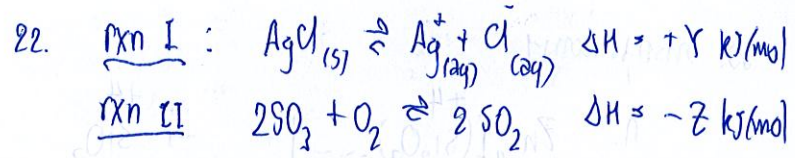 22. rxn I : AgCl (s) ⇌ Ag+ (aq) + Cl- (aq) ΔH = +Y kJ/mol
rxn II 2SO3 + O2 ⇌ 2SO2 ΔH = -Z kJ/mol